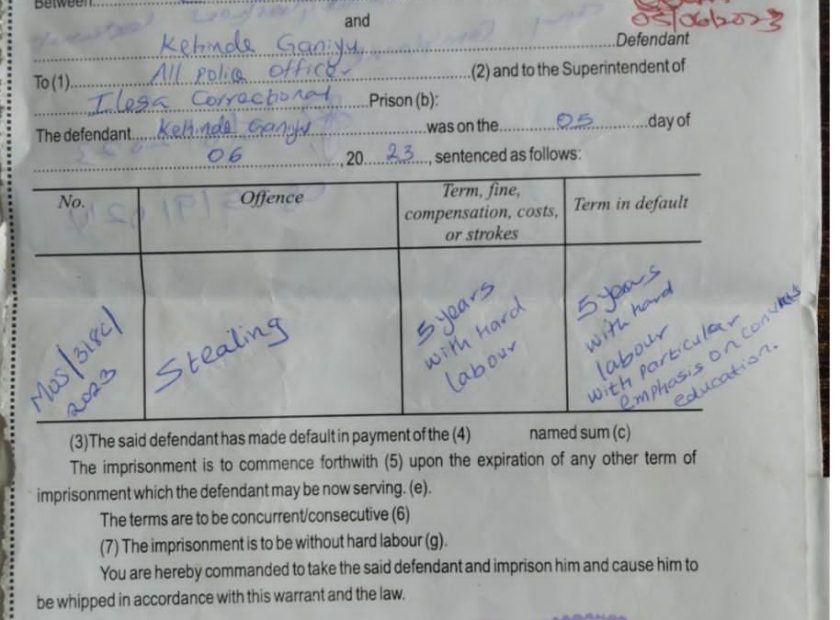 Between
and
05/06/2023
Kehinde Ganiyu Defendant
To (1) All police officer (2) and to the Superintendent of
Ilesa Correctional Prison (b):
The defendant Kehinde Ganiyu was on the 05 day of
06, 20 23, sentenced as follows:
No. Offence Term, fine, compensation, costs, or strokes Term in default
MOS/318C/2023 Stealing 5 years with hard labour 5 years with hard labour with particular emphasis on convicts education.
(3)The said defendant has made default in payment of the (4) named sum (c)
The imprisonment is to commence forthwith (5) upon the expiration of any other term of
imprisonment which the defendant may be now serving. (e).
The terms are to be concurrent/consecutive (6)
(7) The imprisonment is to be without hard labour (g).
You are hereby commanded to take the said defendant and imprison him and cause him to
be whipped in accordance with this warrant and the law.